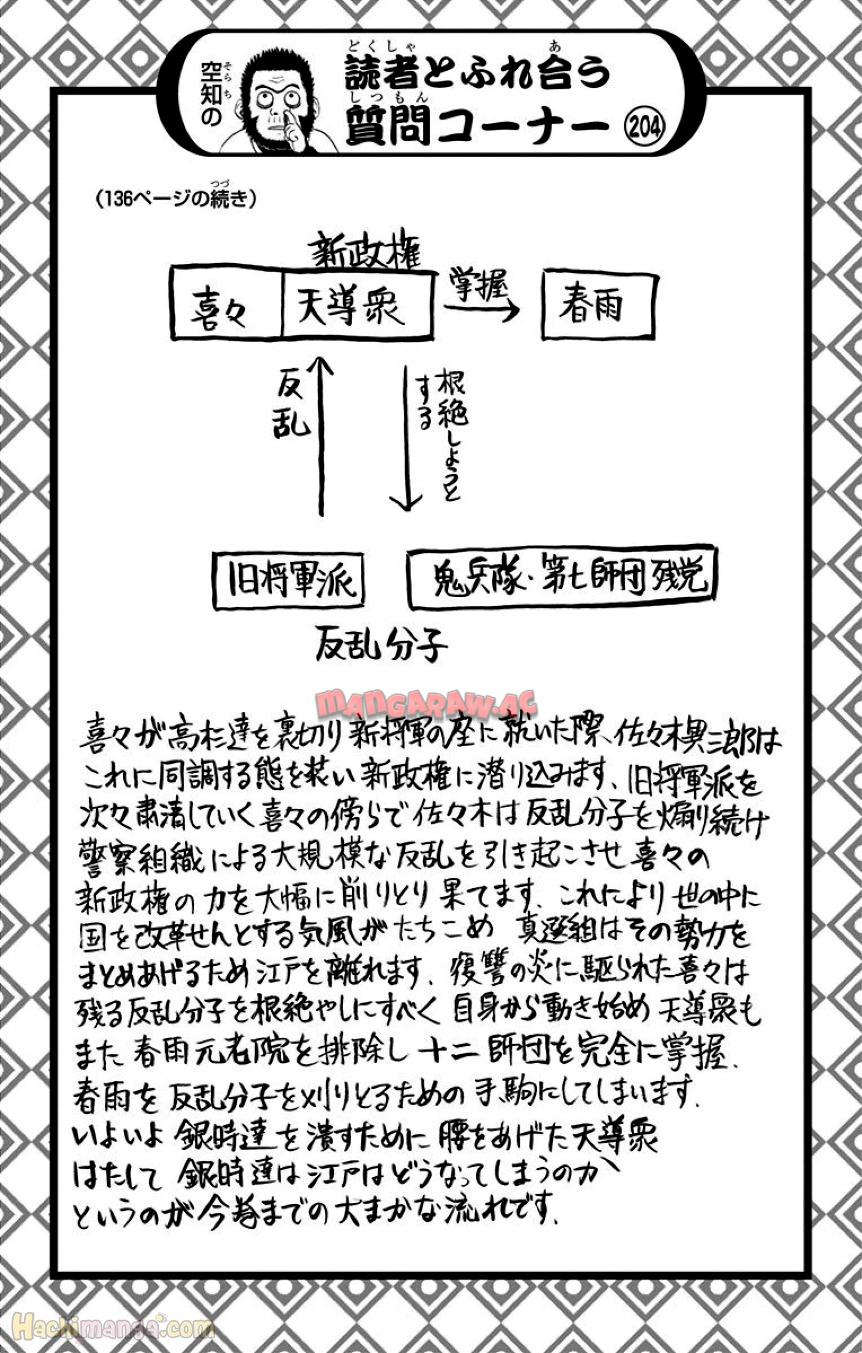 空知の
読者とふれ合う
質問コーナー 204
（136ページの続き）
新政権
喜々 天導衆
掌握
春雨
反乱
根絶しようと
する
旧将軍派
鬼兵隊・第七師団残党
反乱分子
MANGARAW.AC
喜々が高杉達を裏切り新将軍の座に就いた際、佐々木異三郎は
これに同調する態を装い新政権に潜り込みます、旧将軍派を
次々粛清していく喜々の傍らで佐々木は反乱分子を煽り続け
警察組織による大規模な反乱を引き起こさせ喜々の
新政権の力を大幅に削りとり果てます、これにより世の中に
国を改革せんとする気風がたちこめ 真選組はその勢力を
まとめあげるため江戸を離れます、復讐の炎に駆られた喜々は
残る反乱分子を根絶やしにすべく 自身から動き始め 天導衆も
また 春雨元老院を排除し 十二師団を完全に掌握、
春雨を 反乱分子を刈りとるための手駒にしてしまいます、
いよいよ 銀時達を潰すために腰をあげた天導衆
はたして 銀時達は江戸はどうなってしまうのか、
というのが今巻までの大まかな流れです、
Hachimanga.com